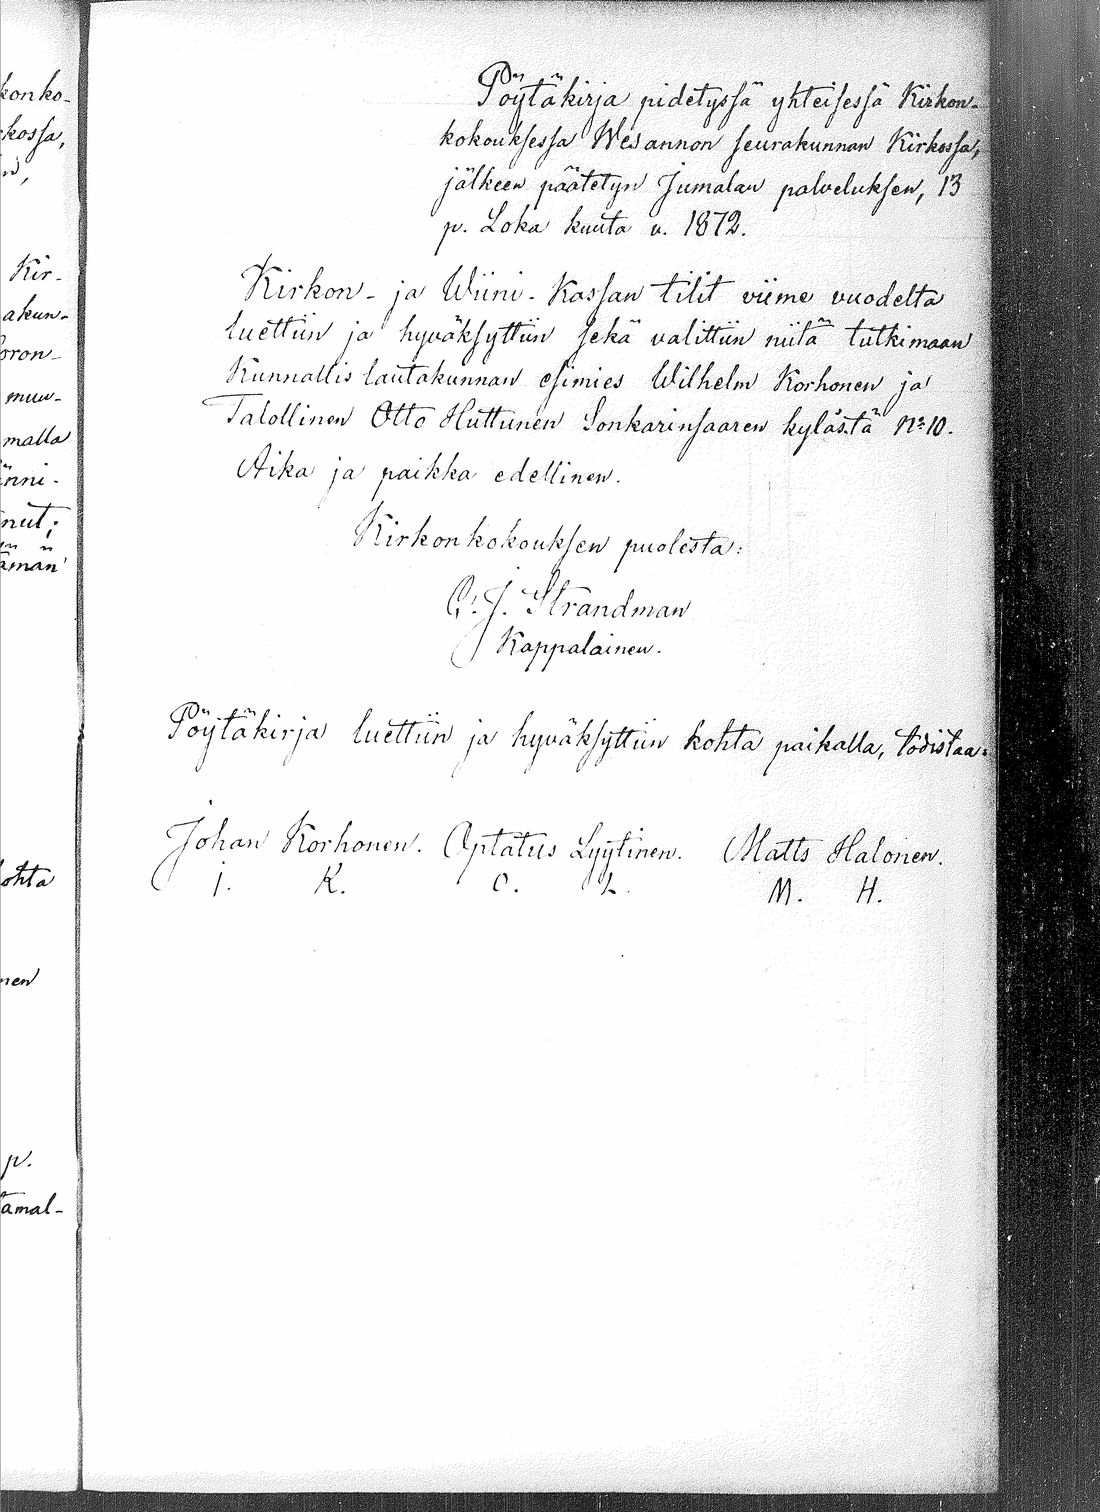 Pöytäkirja pidetyssä yhteisessä Kirkon-
kokouksessa Wesannon seurakunnan Kirkossa,
jälkeen päätetyn Jumalan palveluksen, 13
p. Loka kuuta v. 1872.
Kirkon- ja Wiini-Kassan tilit viime vuodelta
luettiin ja hyväksyttiin sekä valittiin niitä tutkimaan
Kunnallislautakunnan esimies Wilhelm Korhonen ja
Talollinen Otto Huttunen Sonkarinsaaren kylästä No 10.
Aika ja paikka edellinen.
Kirkonkokouksen puolesta:
C. J. Strandman
Kappalainen.
Pöytäkirja luettiin ja hyväksyttiin kohta paikalla, todistaa:
Johan Korhonen. Optatus Lyytinen. Matts Halonen.
J. K. O. L. M. H.
konko-
kossa,
Kir-
akun-
oron-
muu-
malla
änni-
nut;
ämän
ohta
nen
p.
tamal-